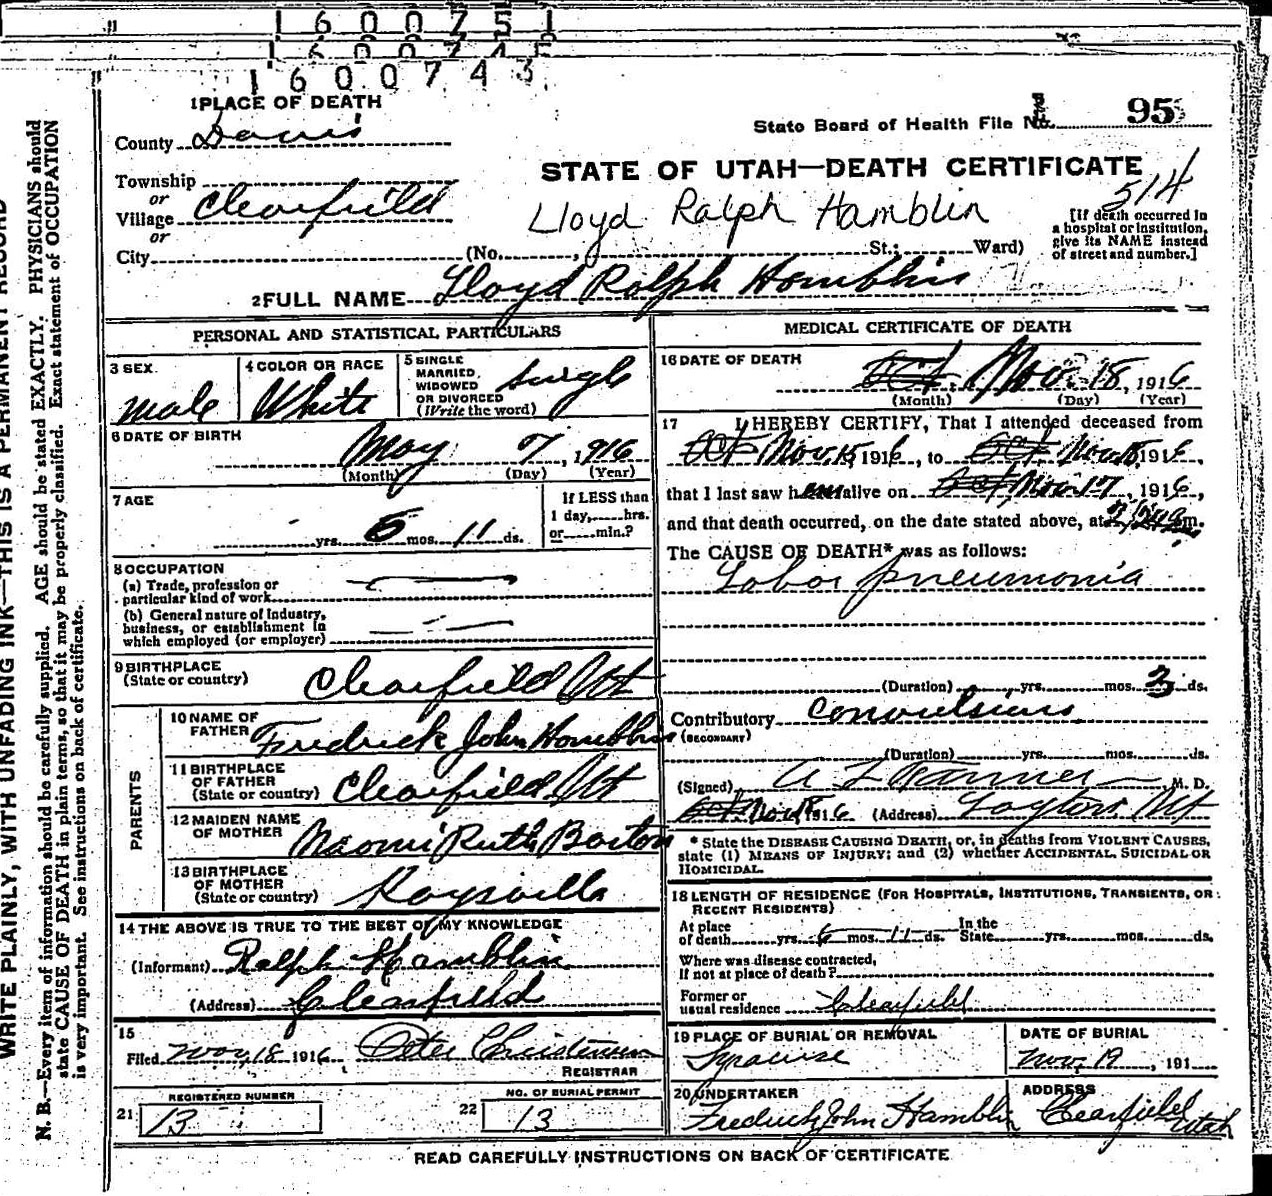 1600751
1600745
1600743
1 PLACE OF DEATH
County Davis
State Board of Health File No. 95
STATE OF UTAH—DEATH CERTIFICATE
514
Township
or
Village Clearfield
or
City
Lloyd Ralph Hamblin
(No. , St.; Ward)
[If death occurred in
a hospital or institution,
give its NAME instead
of street and number.]
2 FULL NAME Lloyd Ralph Hamblin
PERSONAL AND STATISTICAL PARTICULARS
3 SEX
male
4 COLOR OR RACE
White
5 SINGLE
MARRIED,
WIDOWED
OR DIVORCED
(Write the word)
single
6 DATE OF BIRTH
May 7, 1916
(Month) (Day) (Year)
7 AGE
yrs. 6 mos. 11 ds.
If LESS than
1 day, hrs.
or min.?
8 OCCUPATION
(a) Trade, profession or
particular kind of work
(b) General nature of Industry,
business, or establishment in
which employed (or employer)
9 BIRTHPLACE
(State or country)
Clearfield Ut
PARENTS
10 NAME OF
FATHER
Fredrick John Hamblin
11 BIRTHPLACE
OF FATHER
(State or country)
Clearfield Ut
12 MAIDEN NAME
OF MOTHER
Naomi Ruth Barton
13 BIRTHPLACE
OF MOTHER
(State or country)
Kaysville
14 THE ABOVE IS TRUE TO THE BEST OF MY KNOWLEDGE
(Informant) Ralph Hamblin
(Address) Clearfield
15
Filed Nov 18 1916 Peter Christensen
REGISTRAR
21 REGISTERED NUMBER
13
22 NO. OF BURIAL PERMIT
13
MEDICAL CERTIFICATE OF DEATH
16 DATE OF DEATH
Oct. Nov. 18, 1916
(Month) (Day) (Year)
17 I HEREBY CERTIFY, That I attended deceased from
Oct Nov. 15 1916, to Oct Nov. 18 1916,
that I last saw him alive on Oct Nov 17, 1916,
and that death occurred, on the date stated above, at m.
The CAUSE OF DEATH* was as follows:
Lobar pneumonia
(Duration) yrs. mos. 3 ds.
Contributory convulsions
(SECONDARY)
(Duration) yrs. mos. ds.
(Signed) M. D.
Oct Nov 18 1916 (Address) Layton, Ut
* State the DISEASE CAUSING DEATH, or, in deaths from VIOLENT CAUSES,
state (1) MEANS OF INJURY; and (2) whether ACCIDENTAL, SUICIDAL OR
HOMICIDAL.
18 LENGTH OF RESIDENCE (FOR HOSPITALS, INSTITUTIONS, TRANSIENTS, OR
RECENT RESIDENTS)
At place
of death yrs. 6 mos. 11 ds. In the
State yrs. mos. ds.
Where was disease contracted,
if not at place of death?
Former or
usual residence Clearfield
19 PLACE OF BURIAL OR REMOVAL
Syracuse
DATE OF BURIAL
Nov. 19, 191
20 UNDERTAKER
Fredrick John Hamblin
ADDRESS
Clearfield
Utah
READ CAREFULLY INSTRUCTIONS ON BACK OF CERTIFICATE
WRITE PLAINLY, WITH UNFADING INK—THIS IS A PERMANENT RECORD
N. B.—Every item of information should be carefully supplied. AGE should be stated EXACTLY. PHYSICIANS should
state CAUSE OF DEATH in plain terms, so that it may be properly classified. Exact statement of OCCUPATION
is very important. See instructions on back of certificate.